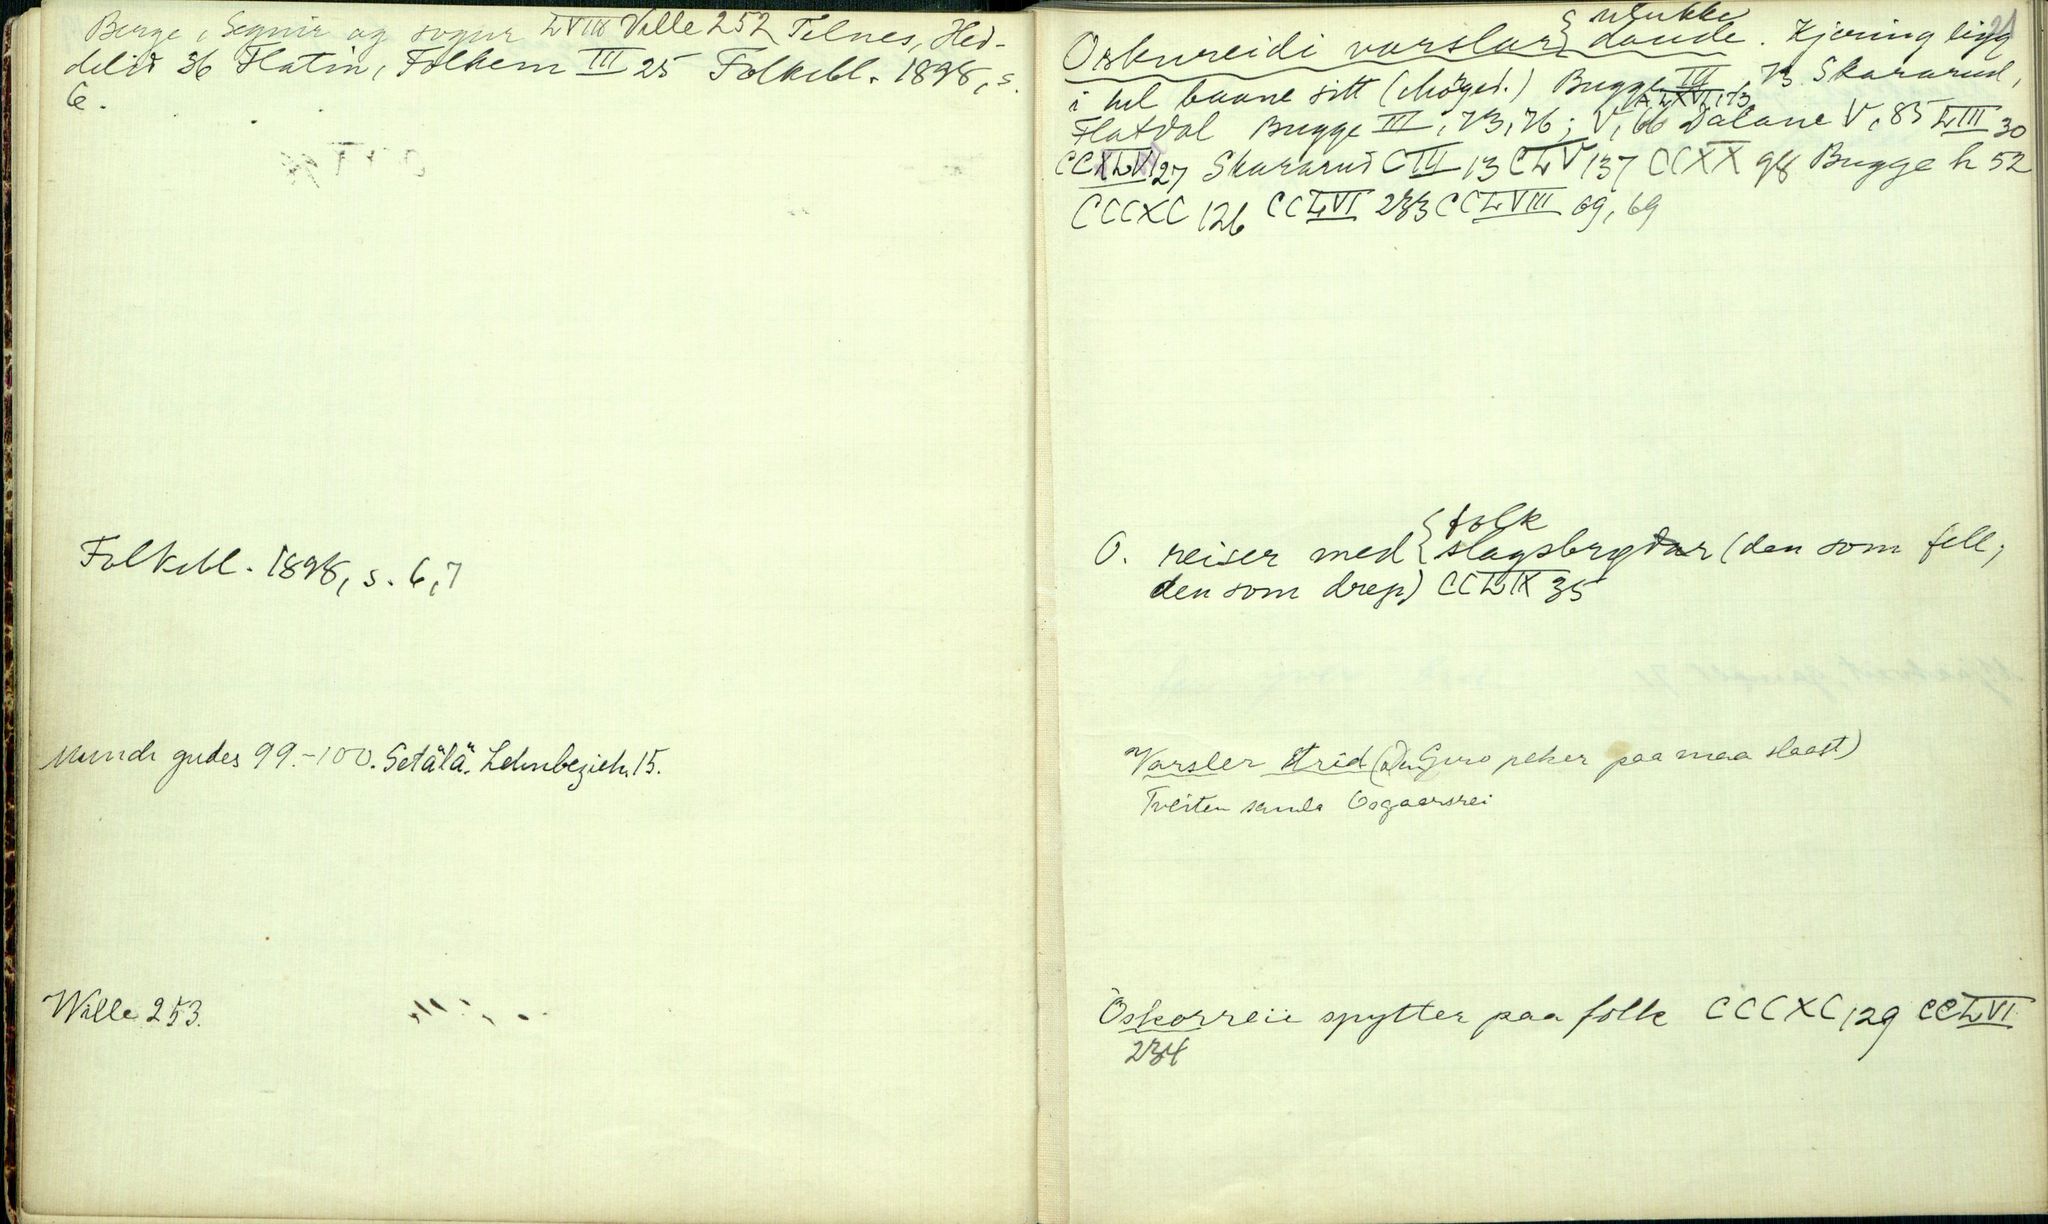 Berge, Segnir og sogur LVIII Ville 252 Telnes, Hed-
delid 36 Flatin, Folkem III 25 Folkebl. 1898, s.
6.
Folkebl. 1898, s. 6,7
gudes 99.-100. Setälä. Lehnbezieh. 15.
Wille 253.
21
ulukke
Oskureidi varslar { daude. Kjering ligg
i hel baane sitt Bugge III, 73 Skararud,
A. LXVI, 173
Flatdal Bugge III, 73, 76; V, 66 Dalane V, 85 LIII 30
CCXLVI 27 Skararud CIII 13 CLV 137 CCXX 98 Bugge h 52
CCCXC 126 CCLVI 233 CCLVIII 69, 69
folk
O. reiser med { slagsbrydar (den som fell,
den som drep) CCLIX 35
Varsler strid (den Guro peker paa maa slaast)
Tveiten Osgaarsrei
Oskorreie spytter paa folk CCCXC 129 CCLVI
234